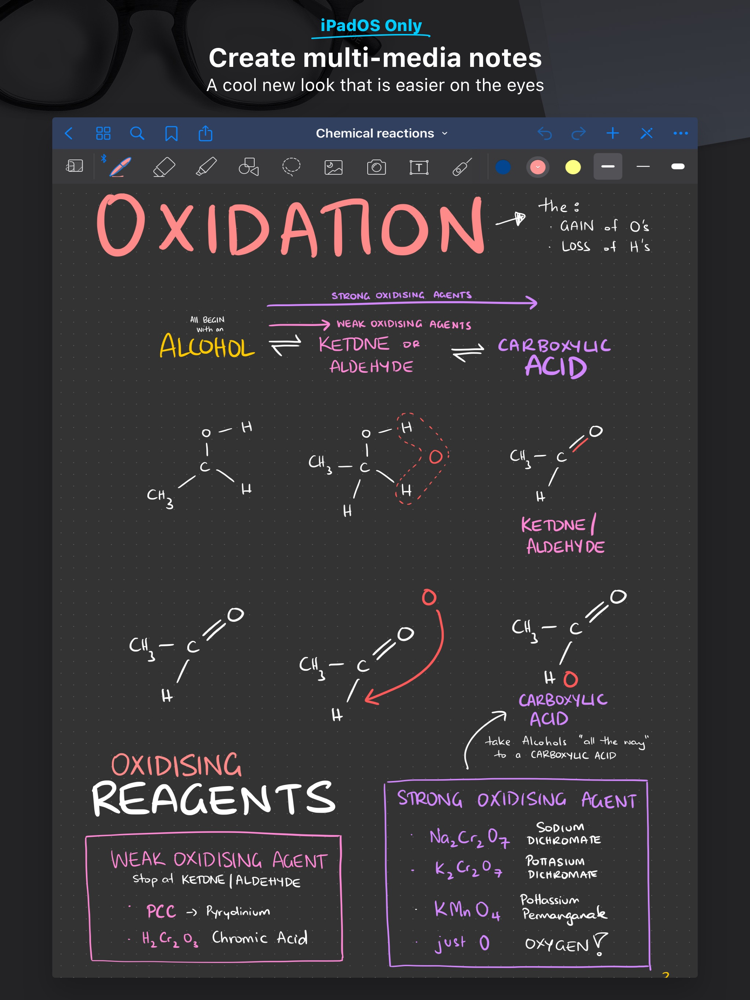 iPadOS Only
Create multi-media notes
A cool new look that is easier on the eyes
Chemical reactions
T
OXIDATION
the:
· GAIN of O's
· LOSS of H's
STRONG OXIDISING AGENTS
WEAK OXIDISING AGENTS
All BEGIN
with an
ALCOHOL ⇌ KETONE OR ⇌ CARBOXYLIC
ALDEHYDE ACID
O — H
C
CH₃ H
O — H
O
CH₃ — C
H
H
O
CH₃ — C
H
KETONE/
ALDEHYDE
O
CH₃ — C
H
O
O
CH₃ — C
H
O
CH₃ — C
H O
CARBOXYLIC
ACID
take Alcohols "all the way"
to a CARBOXYLIC ACID
OXIDISING
REAGENTS
WEAK OXIDISING AGENT
Stop at KETONE/ALDEHYDE
· PCC → Pyrydinium
· H₂Cr₂O₃ Chromic Acid
STRONG OXIDISING AGENT
· Na₂Cr₂O₇ SODIUM DICHROMATE
· K₂Cr₂O₇ POTTASIUM DICHROMATE
· KMnO₄ Pottassium Permanganate
· just O OXYGEN!